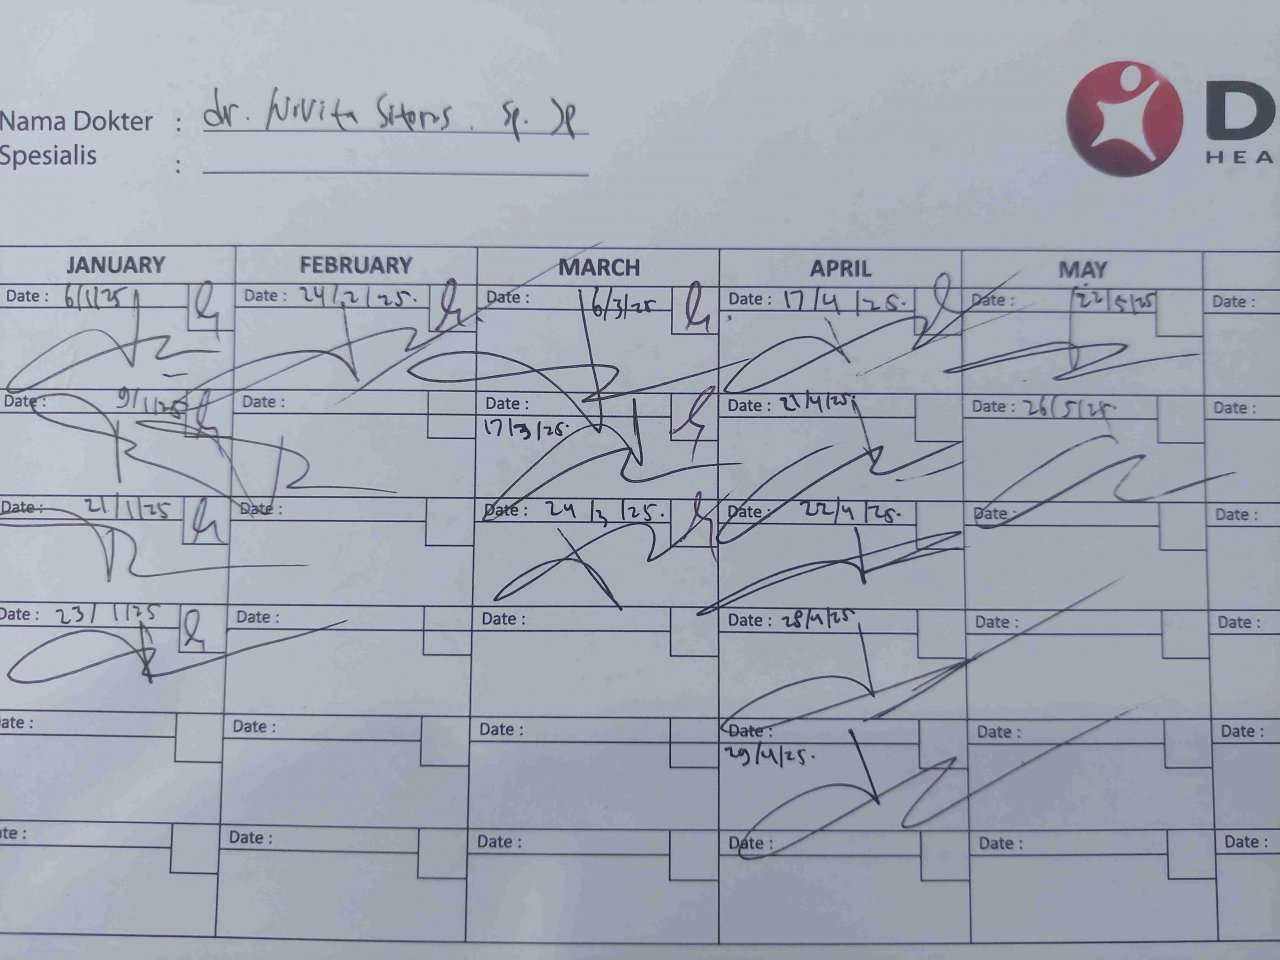 Nama Dokter : dr. Novita Sitorus Sp. JP
Spesialis :
D
HEA
JANUARY FEBRUARY MARCH APRIL MAY
Date : 6/1/25 Date : 24/2/25. Date : 6/3/25 Date : 17/4/25. Date : 22/5/25 Date :
Date : 9/1/25 Date : Date : Date : 21/4/25 Date : 26/5/25 Date :
17/3/25.
Date : 21/1/25 Date : Date : 24/3/25. Date : 22/4/25. Date : Date :
Date : 23/1/25 Date : Date : Date : 28/4/25 Date : Date :
ate : Date : Date : Date : Date : Date :
29/4/25.
te : Date : Date : Date : Date : Date :